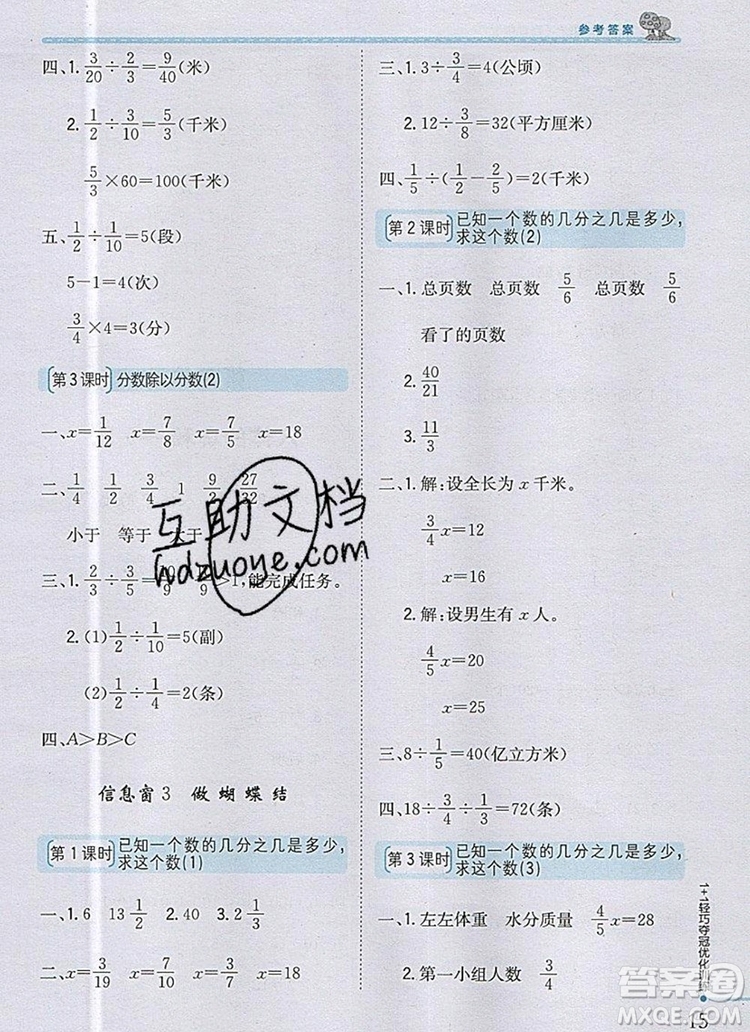 参考答案
四、1. 3/20÷3/8=9/40(米)
2. 1/2÷3/10=5/3(千米)
5/3×60=100(千米)
五、1/2÷1/10=5(段)
5-1=4(次)
3/4×4=3(分)
第3课时 分数除以分数(2)
一、x=1/12 x=7/8 x=7/5 x=18
二、1/4 1/4 3/4 1 9/2 27/32
小于 等于 大于
三、1. 2/3÷3/5=10/9 10/9>1,能完成任务。
2. (1) 1/2÷1/10=5(副)
(2) 1/2÷1/4=2(条)
四、A>B>C
信息窗3 做蝴蝶结
第1课时 已知一个数的几分之几是多少,
求这个数(1)
一、1. 6 13 1/2 2. 40 3. 2 1/2
二、x=3/19 x=2/9 x=2/5
三、1. 3÷3/4=4(公顷)
2. 12÷3/8=32(平方厘米)
四、1/5÷(1/2-2/5)=2(千米)
第2课时 已知一个数的几分之几是多少,
求这个数(2)
一、1. 总页数 总页数 5/6 总页数 5/6
看了的页数
2. 40/21
3. 11/3
二、1. 解:设全长为x千米。
3/4x=12
x=16
2. 解:设男生有x人。
4/5x=20
x=25
三、8÷1/5=40(亿立方米)
四、18÷3/4÷1/3=72(条)
第3课时 已知一个数的几分之几是多少,
求这个数(3)
一、1. 左左体重 水分质量 4/5x=28
2. 第一小组人数 3/4
1+1轻巧夺冠优化训练
15
互助文档
hdzuoye.com
答案圈
MXQE.COM